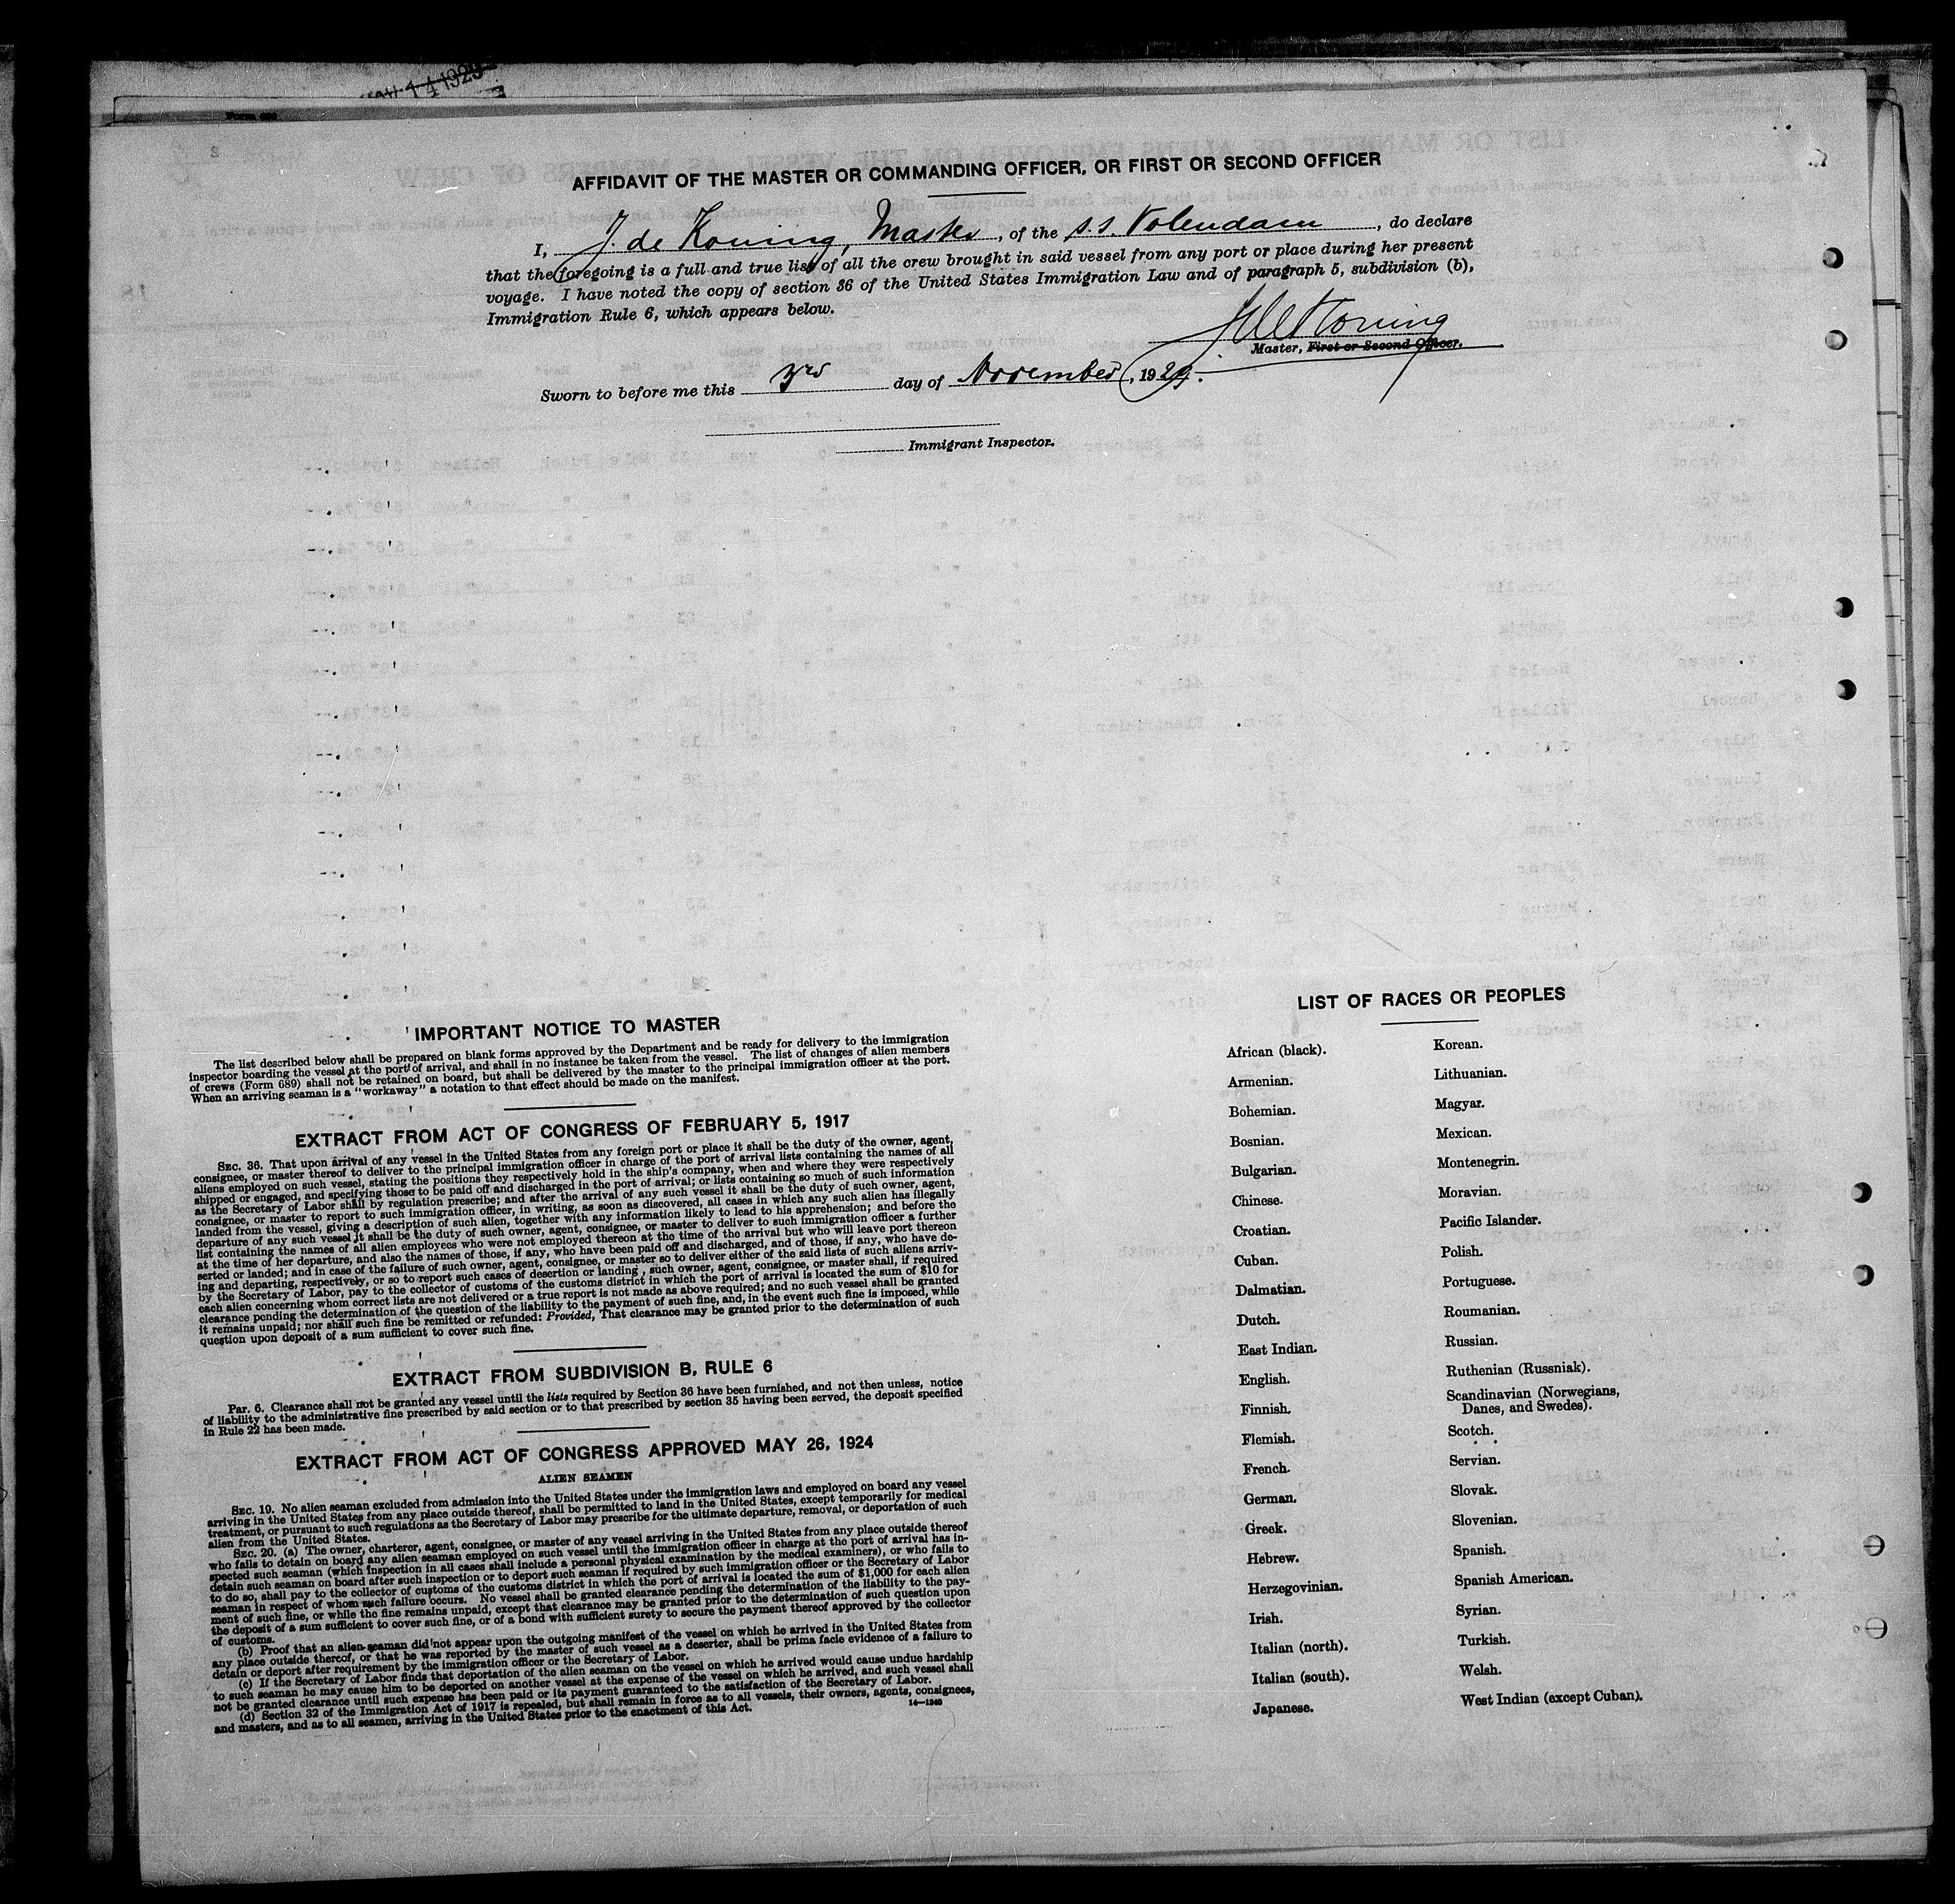 14 1929
AFFIDAVIT OF THE MASTER OR COMMANDING OFFICER, OR FIRST OR SECOND OFFICER
I, J. de Koning, Master, of the s.s. Volendam, do declare
that the foregoing is a full and true list of all the crew brought in said vessel from any port or place during her present
voyage. I have noted the copy of section 36 of the United States Immigration Law and of paragraph 5, subdivision (b),
Immigration Rule 6, which appears below.
JdeKoning
Master, First or Second Officer.
Sworn to before me this 3rd day of November, 1929.
Immigrant Inspector.
IMPORTANT NOTICE TO MASTER
The list described below shall be prepared on blank forms approved by the Department and be ready for delivery to the immigration
inspector boarding the vessel at the port of arrival, and shall in no instance be taken from the vessel. The list of changes of alien members
of crews (Form 689) shall not be retained on board, but shall be delivered by the master to the principal immigration officer at the port.
When an arriving seaman is a "workaway" a notation to that effect should be made on the manifest.
EXTRACT FROM ACT OF CONGRESS OF FEBRUARY 5, 1917
SEC. 36. That upon arrival of any vessel in the United States from any foreign port or place it shall be the duty of the owner, agent,
consignee, or master thereof to deliver to the principal immigration officer in charge of the port of arrival lists containing the names of all
aliens employed on such vessel, stating the positions they respectively hold in the ship's company, when and where they were respectively
shipped or engaged, and specifying those to be paid off and discharged in the port of arrival; or lists containing so much of such information
as the Secretary of Labor shall by regulation prescribe; and after the arrival of any such vessel it shall be the duty of such owner, agent,
consignee, or master to report to such immigration officer, in writing, as soon as discovered, all cases in which any such alien has illegally
landed from the vessel, giving a description of such alien, together with any information likely to lead to his apprehension; and before the
departure of any such vessel it shall be the duty of such owner, agent, consignee, or master to deliver to such immigration officer a further
list containing the names of all alien employees who were not employed thereon at the time of the arrival but who will leave port thereon
at the time of her departure, and also the names of those, if any, who have been paid off and discharged, and of those, if any, who have de-
serted or landed; and in case of the failure of such owner, agent, consignee, or master so to deliver either of the said lists of such aliens arriv-
ing and departing, respectively, or so to report such cases of desertion or landing, such owner, agent, consignee, or master shall, if required
by the Secretary of Labor, pay to the collector of customs of the customs district in which the port of arrival is located the sum of $10 for
each alien concerning whom correct lists are not delivered or a true report is not made as above required; and no such vessel shall be granted
clearance pending the determination of the question of the liability to the payment of such fine, and, in the event such fine is imposed, while
it remains unpaid; nor shall such fine be remitted or refunded: Provided, That clearance may be granted prior to the determination of such
question upon deposit of a sum sufficient to cover such fine.
EXTRACT FROM SUBDIVISION B, RULE 6
PAR. 6. Clearance shall not be granted any vessel until the lists required by Section 36 have been furnished, and not then unless, notice
of liability to the administrative fine prescribed by said section or to that prescribed by section 35 having been served, the deposit specified
in Rule 22 has been made.
EXTRACT FROM ACT OF CONGRESS APPROVED MAY 26, 1924
ALIEN SEAMEN
SEC. 19. No alien seaman excluded from admission into the United States under the immigration laws and employed on board any vessel
arriving in the United States from any place outside thereof, shall be permitted to land in the United States, except temporarily for medical
treatment, or pursuant to such regulations as the Secretary of Labor may prescribe for the ultimate departure, removal, or deportation of such
alien from the United States.
SEC. 20. (a) The owner, charterer, agent, consignee, or master of any vessel arriving in the United States from any place outside thereof
who fails to detain on board any alien seaman employed on such vessel until the immigration officer in charge at the port of arrival has in-
spected such seaman (which inspection in all cases shall include a personal physical examination by the medical examiners), or who fails to
detain such seaman on board after such inspection or to deport such seaman if required by such immigration officer or the Secretary of Labor
to do so, shall pay to the collector of customs of the customs district in which the port of arrival is located the sum of $1,000 for each alien
seaman in respect of whom such failure occurs. No vessel shall be granted clearance pending the determination of the liability to the pay-
ment of such fine, or while the fine remains unpaid, except that clearance may be granted prior to the determination of such question upon
the deposit of a sum sufficient to cover such fine, or of a bond with sufficient surety to secure the payment thereof approved by the collector
of customs.
(b) Proof that an alien seaman did not appear upon the outgoing manifest of the vessel on which he arrived in the United States from
any place outside thereof, or that he was reported by the master of such vessel as a deserter, shall be prima facie evidence of a failure to
detain or deport after requirement by the immigration officer or the Secretary of Labor.
(c) If the Secretary of Labor finds that deportation of the alien seaman on the vessel on which he arrived would cause undue hardship
to such seaman he may cause him to be deported on another vessel at the expense of the vessel on which he arrived, and such vessel shall
not be granted clearance until such expense has been paid or its payment guaranteed to the satisfaction of the Secretary of Labor.
(d) Section 32 of the Immigration Act of 1917 is repealed, but shall remain in force as to all vessels, their owners, agents, consignees,
and masters, and as to all seamen, arriving in the United States prior to the enactment of this Act.
14—1340
LIST OF RACES OR PEOPLES
African (black).
Armenian.
Bohemian.
Bosnian.
Bulgarian.
Chinese.
Croatian.
Cuban.
Dalmatian.
Dutch.
East Indian.
English.
Finnish.
Flemish.
French.
German.
Greek.
Hebrew.
Herzegovinian.
Irish.
Italian (north).
Italian (south).
Japanese.
Korean.
Lithuanian.
Magyar.
Mexican.
Montenegrin.
Moravian.
Pacific Islander.
Polish.
Portuguese.
Roumanian.
Russian.
Ruthenian (Russniak).
Scandinavian (Norwegians,
Danes, and Swedes).
Scotch.
Servian.
Slovak.
Slovenian.
Spanish.
Spanish American.
Syrian.
Turkish.
Welsh.
West Indian (except Cuban).